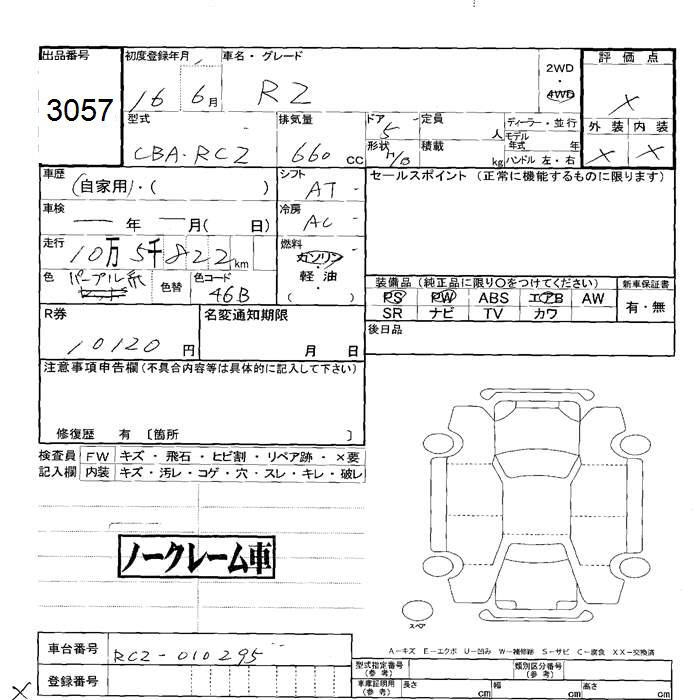 出品番号 初度登録年月 車名・グレード 2WD・4WD 評価点
3057 16 6月 R2 ×
型式 排気量 ドア 定員 人 ディーラー・並行 外装 内装
CBA-RC2 660 cc 5 形状 積載 kg モデル年式 年 ハンドル 左・右 × ×
車歴 (自家用)・( ) シフト AT セールスポイント (正常に機能するものに限ります)
車検 年 月( 日) 冷房 AC
走行 10万 5千 822 km 燃料 ガソリン・軽油・( )
色 パープル 色替 色コード 46B
装備品 (純正品に限り〇をつけてください) 新車保証書
PS PW ABS エアB AW 有・無
SR ナビ TV カワ
R券 名変通知期限 後日品
10120 円 月 日
注意事項申告欄 (不具合内容等は具体的に記入して下さい)
修復歴 有 〔箇所 〕
検査員 FW キズ・飛石・ヒビ割・リペア跡・×要
記入欄 内装 キズ・汚レ・コゲ・穴・スレ・キレ・破レ
ノークレーム車
スペア
A-キズ E-エクボ U-凹み W-補修跡 S-サビ C-腐食 XX-交換済
車台番号 RC2-010295
登録番号
型式指定番号 (参考) 類別区分番号 (参考)
車庫証明用 (参考) 長さ cm 幅 cm 高さ cm
×